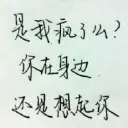 是我疯了么?
你在身边
还是想起你